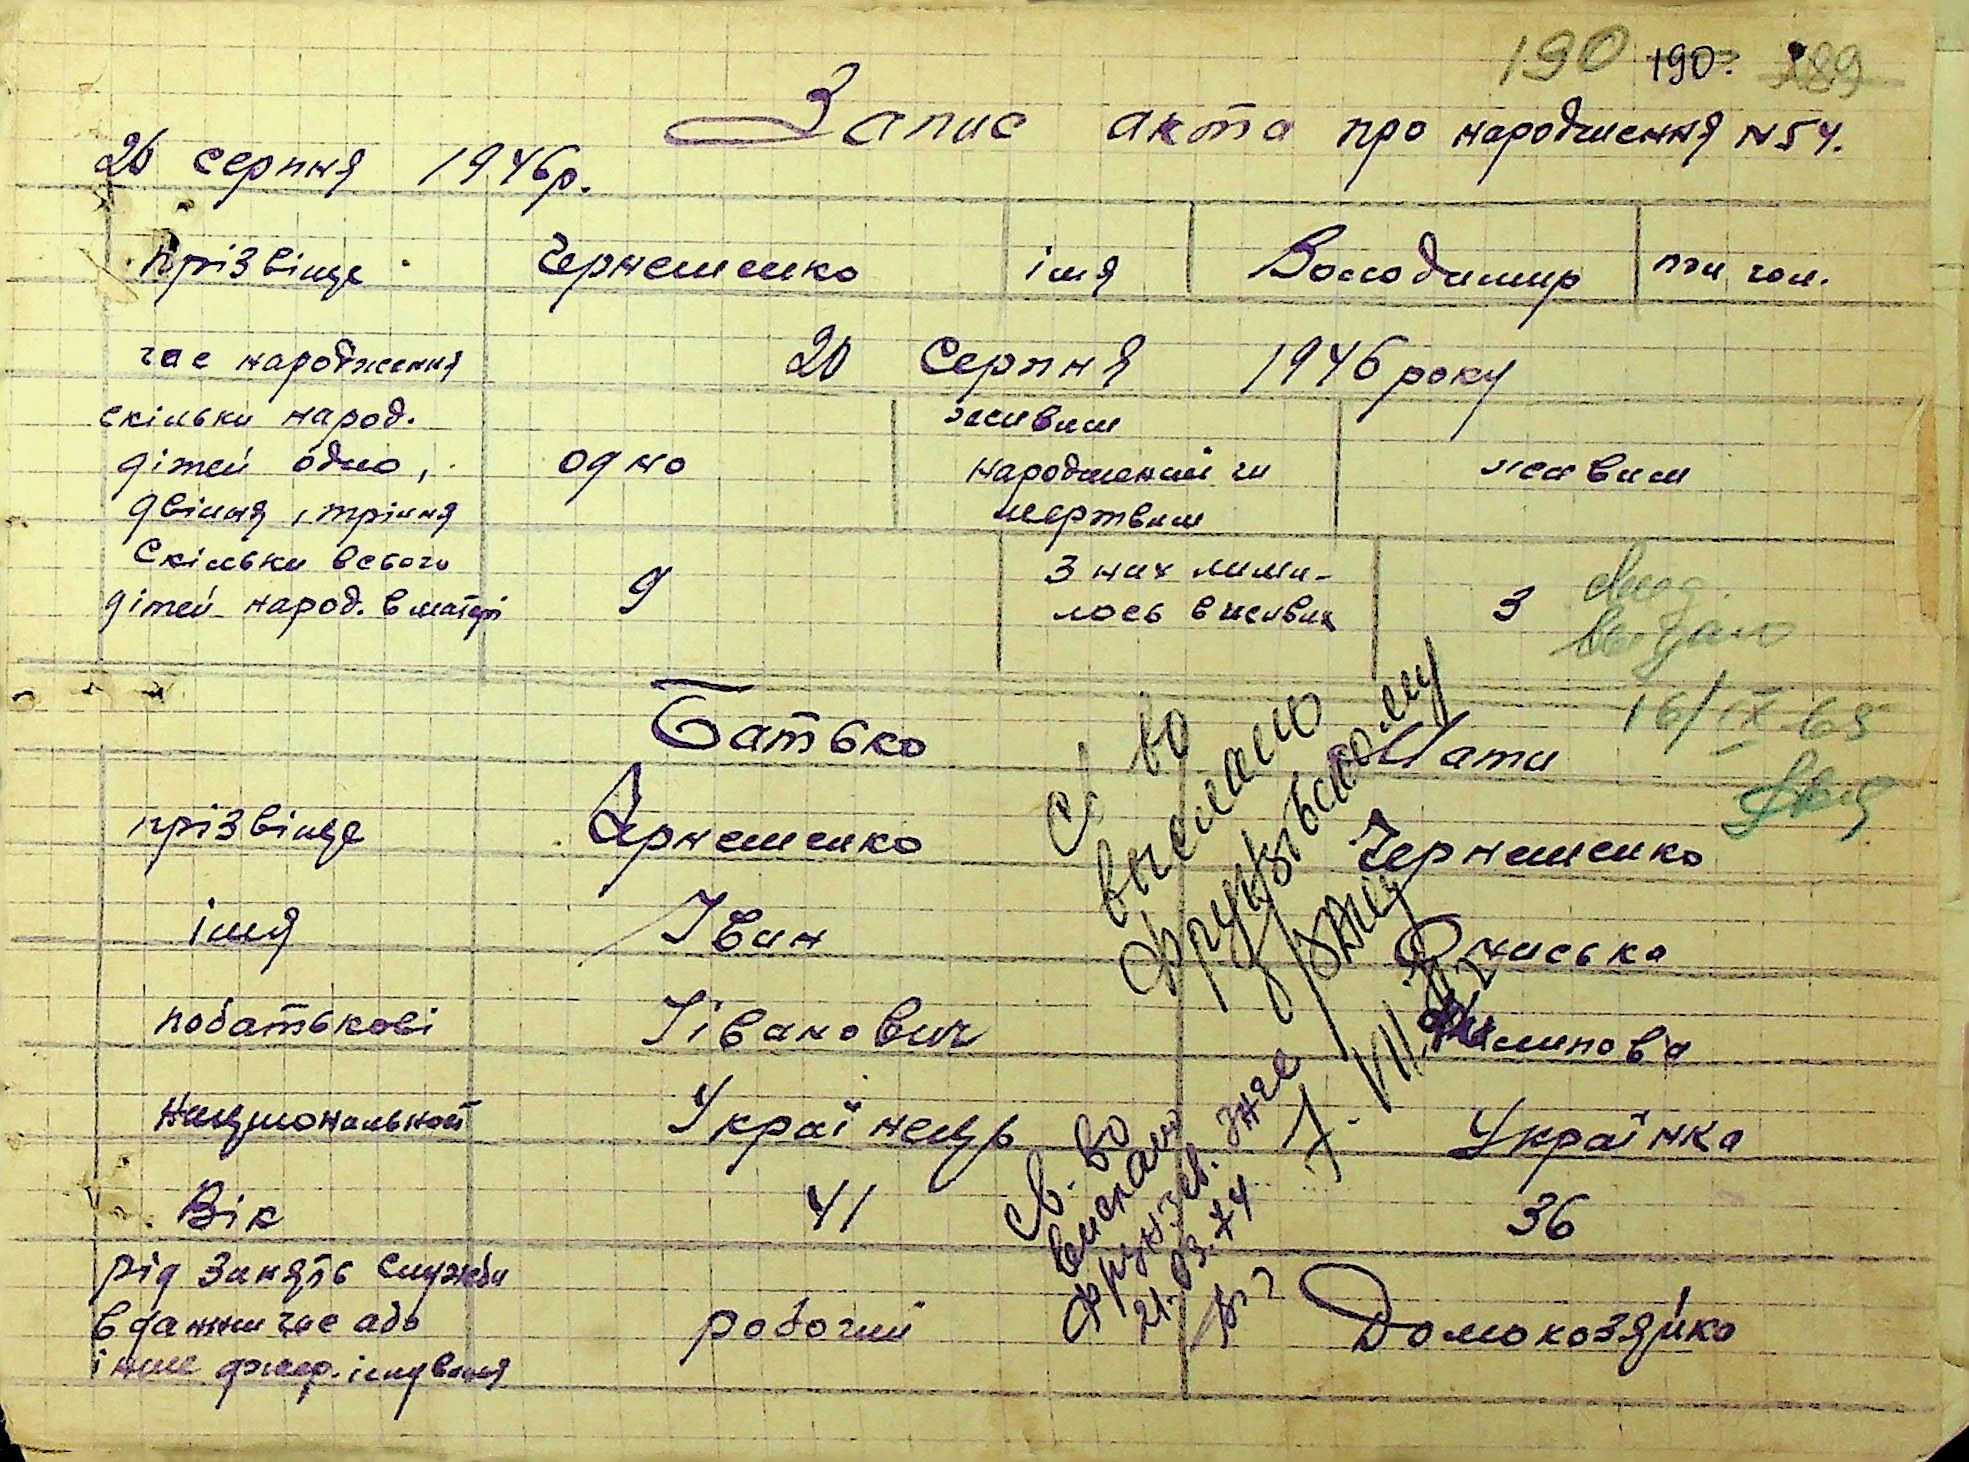 190 190. 189
Запис акта про народження N 54.
20 серпня 1946р.
Прізвище Чернешенко імя Володимир пол чол.
час народження 20 Серпня 1946 року
скільки народ. дітей одно, двійня, трійня одно живим народжений чи мертвим живим
Скільки всього дітей народ. в матері 9 З них лиши-лось в живих 3
выдано
16/IX-65
Батько Мати
прізвище Чернешенко Чернешенко
імя Іван Ониська
побатькові Іванович Филипова
Національност Українець Українка
Вік 41 36
рід занять служби в данни час або інше джер. існування робочий Домохозяйка
св во
выслано
Фрунзенському
7. VII.
св. во
вислано
Фрунзев. ЗАГС
21.03.74